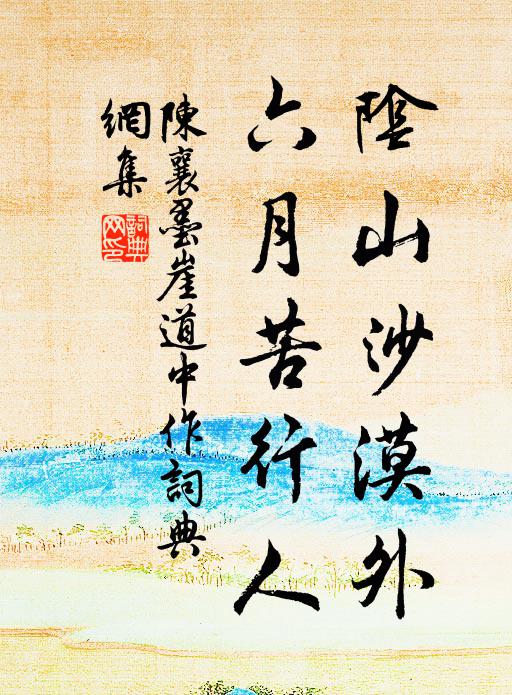 陰山沙漠外
六月苦行人
陳襄墨崖道中作詞典
網集
詞典
网印